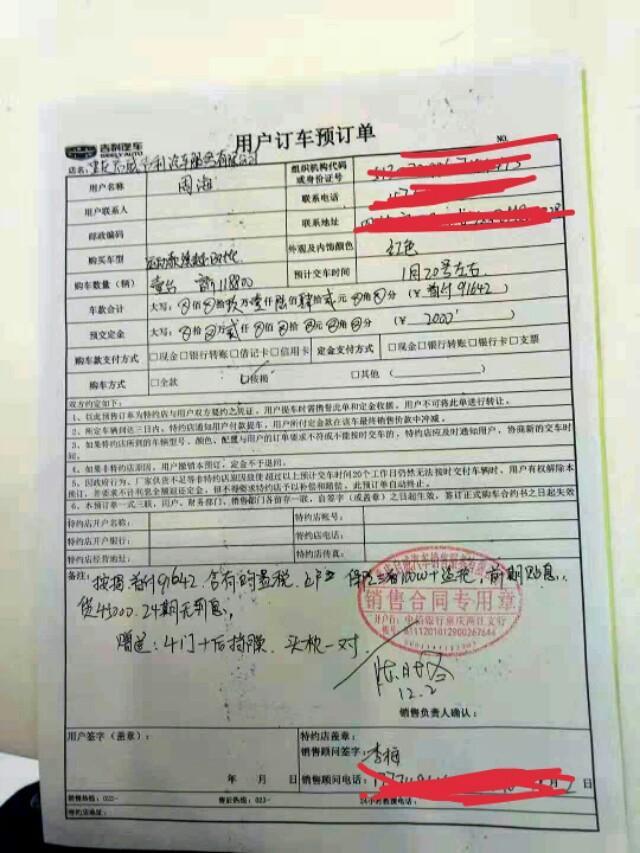 吉利汽车
GEELY AUTO
用户订车预订单
NO.
店名:
组织机构代码
或身份证号
用户名称 周海
用户联系人
联系电话
邮政编码
联系地址
购买车型
外观及内饰颜色 红色
购车数量（辆） 壹台 118800
预计交车时间 1月20号左右
车款合计 大写: 佰 拾玖万壹仟陆佰肆拾贰元 角 分 （￥首付91642）
预交定金 大写: 佰 拾 万贰仟 佰 拾 元 角 分 （￥ 2000 ）
购车款支付方式 □现金□银行转账□借记卡□信用卡 定金支付方式 □现金□银行转账□银行卡□支票
购车方式 □全款 ☑按揭 □其他（ ）
双方约定如下:
1、以此预售订单为特约店与用户双方要约之凭证，用户提车时需携带此单和定金收据，用户不可将此单进行转让。
2、所定车辆到达三日内，特约店通知用户付款提车，用户所付定金款在该车最终销售价款中冲减。
3、如果特约店所到的车辆型号、颜色、配置与用户的订单要求不符或不能按时交车的，特约店应及时通知用户，协商新的交车时间。
4、如果非特约店原因，用户撤销本预订，定金不予退回。
5、因政府行为、厂家供货不足等非特约店原因致使超过以上预计交车时间20个工作日仍然无法按时交付车辆时，用户有权解除本
预订，并要求不计利息全额退还定金，但不得要求特约店予以补偿和赔偿，此预订单自动终止。
6、本预订单一式三联，用户、财务部门、销售部门各留存一联，自签字（或盖章）之日起生效，签订正式购车合约书之日起失效
特约店开户名称: 特约店账号:
特约店开户银行: 特约店电话:
特约店经营地址: 特约店传真:
备注: 按揭 首付91642 含有的 税 上户 保险三者100w+盗抢，前期贴息，
贷45000. 24期无利息，
销售合同专用章
开户行: 中信银行重庆两江支行
账号: 8111201012900267644
赠送: 4门+后挡膜. 头枕一对.
12.2
销售负责人确认:
用户签字（盖章）: 特约店盖章:
销售顾问签字: 李梅
年 月 日 销售顾问电话: 月 日
销售热线: 023- 售后热线: 023- 24小时救援电话:
特约店地址: